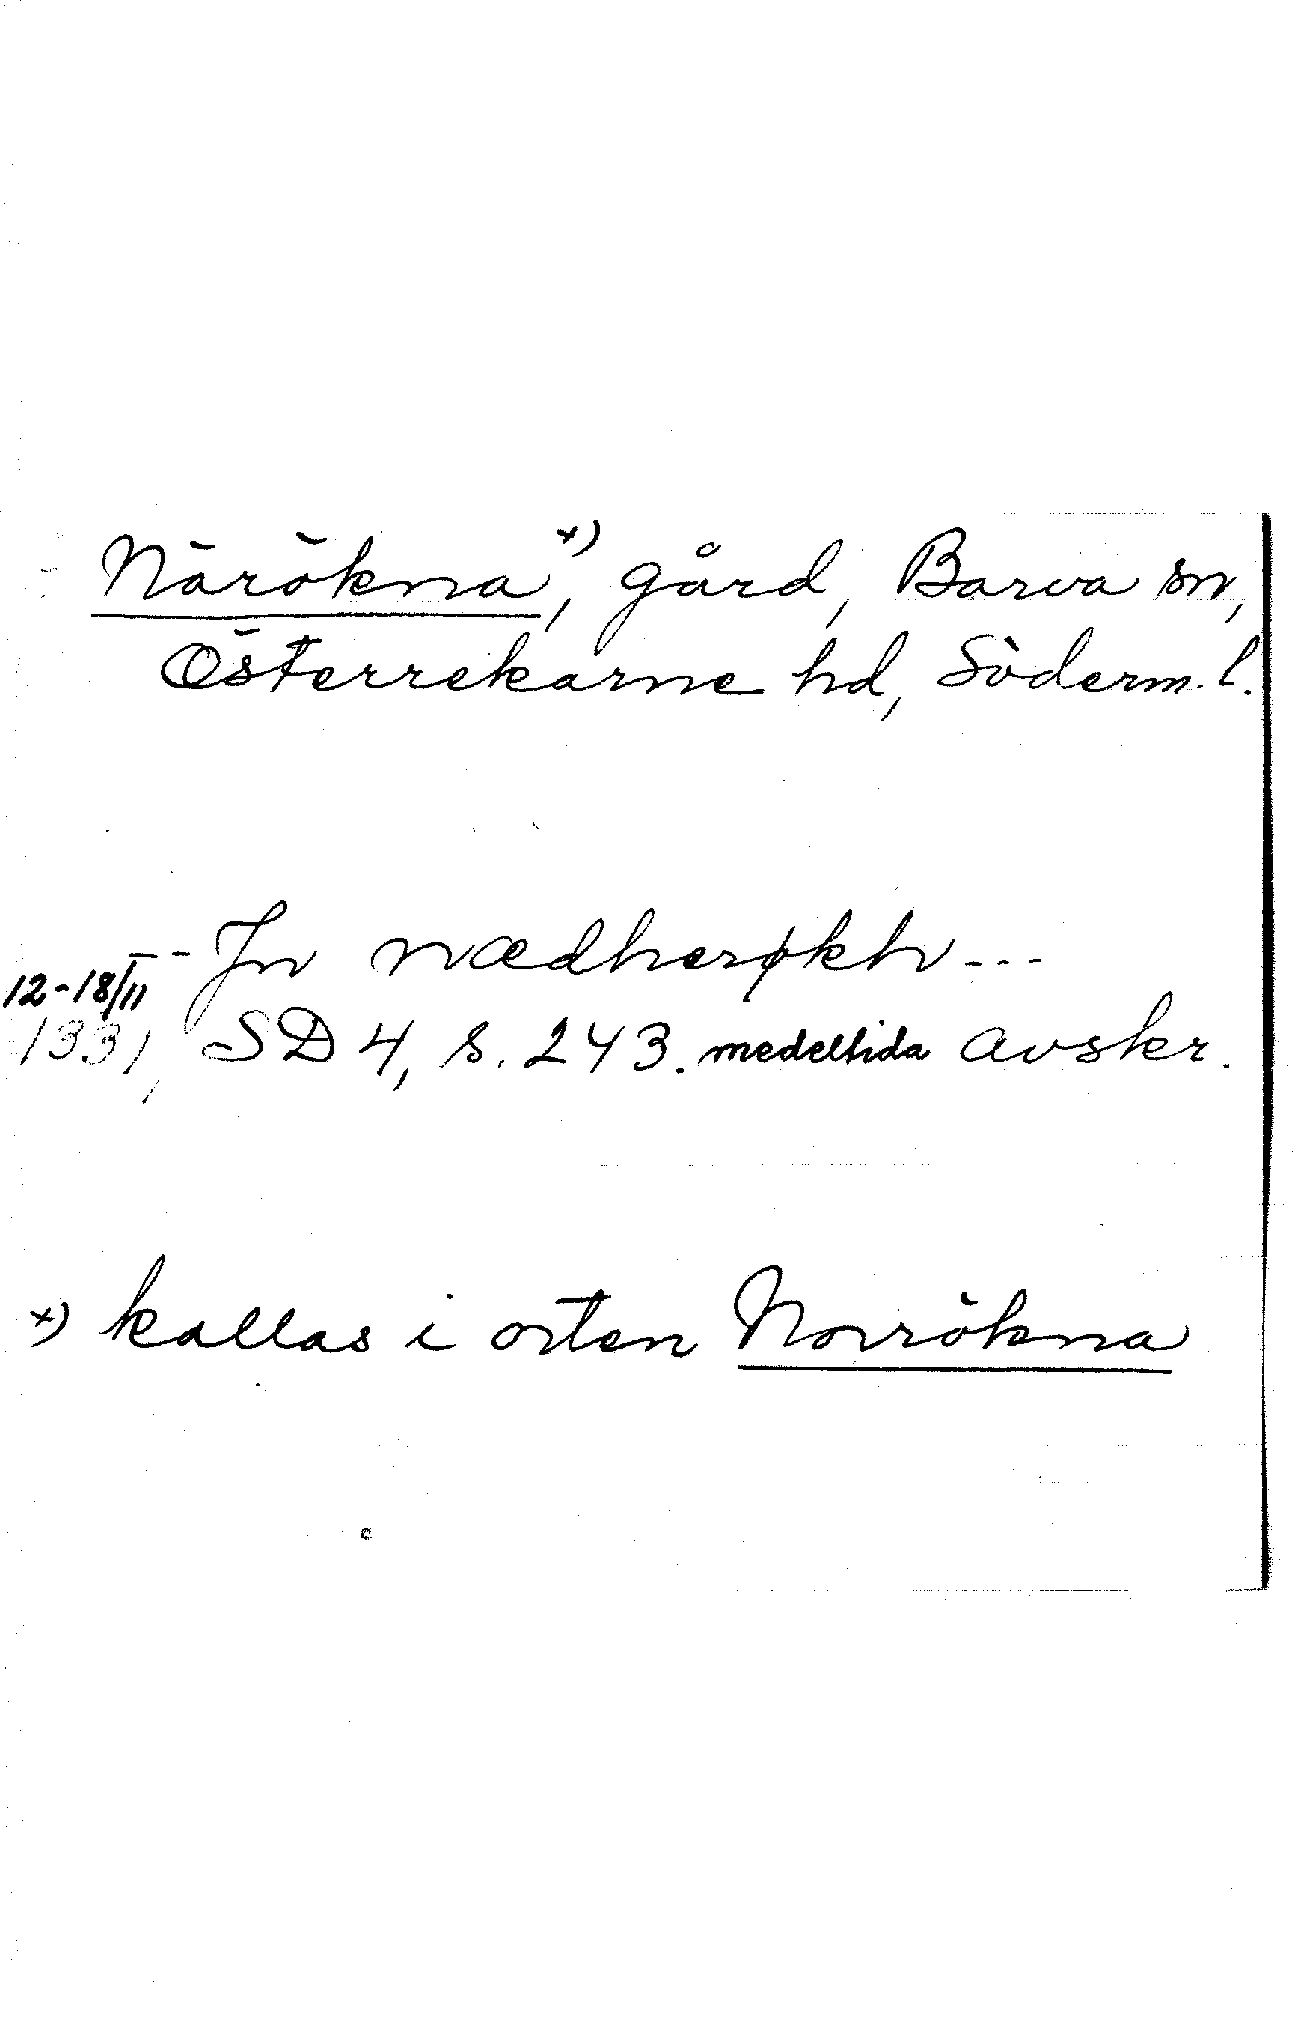 Närökna x), gård, Barva sn,
Österrekarne hd, Söderm. l.
Jn nædherøkh ---
12-18/11
1331, SD 4, s. 243. medeltida avskr.
x) kallas i orten Norrökna